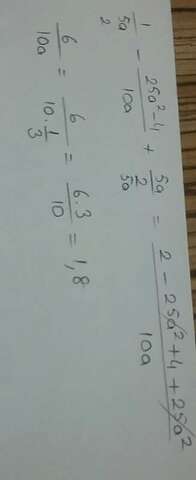 1/5a - (25a²-4)/10a + 5a/2 = (2 - 25a² + 4 + 25a²)/10a
2 5a
6/10a = 6/(10·1/3) = 6·3/10 = 1,8